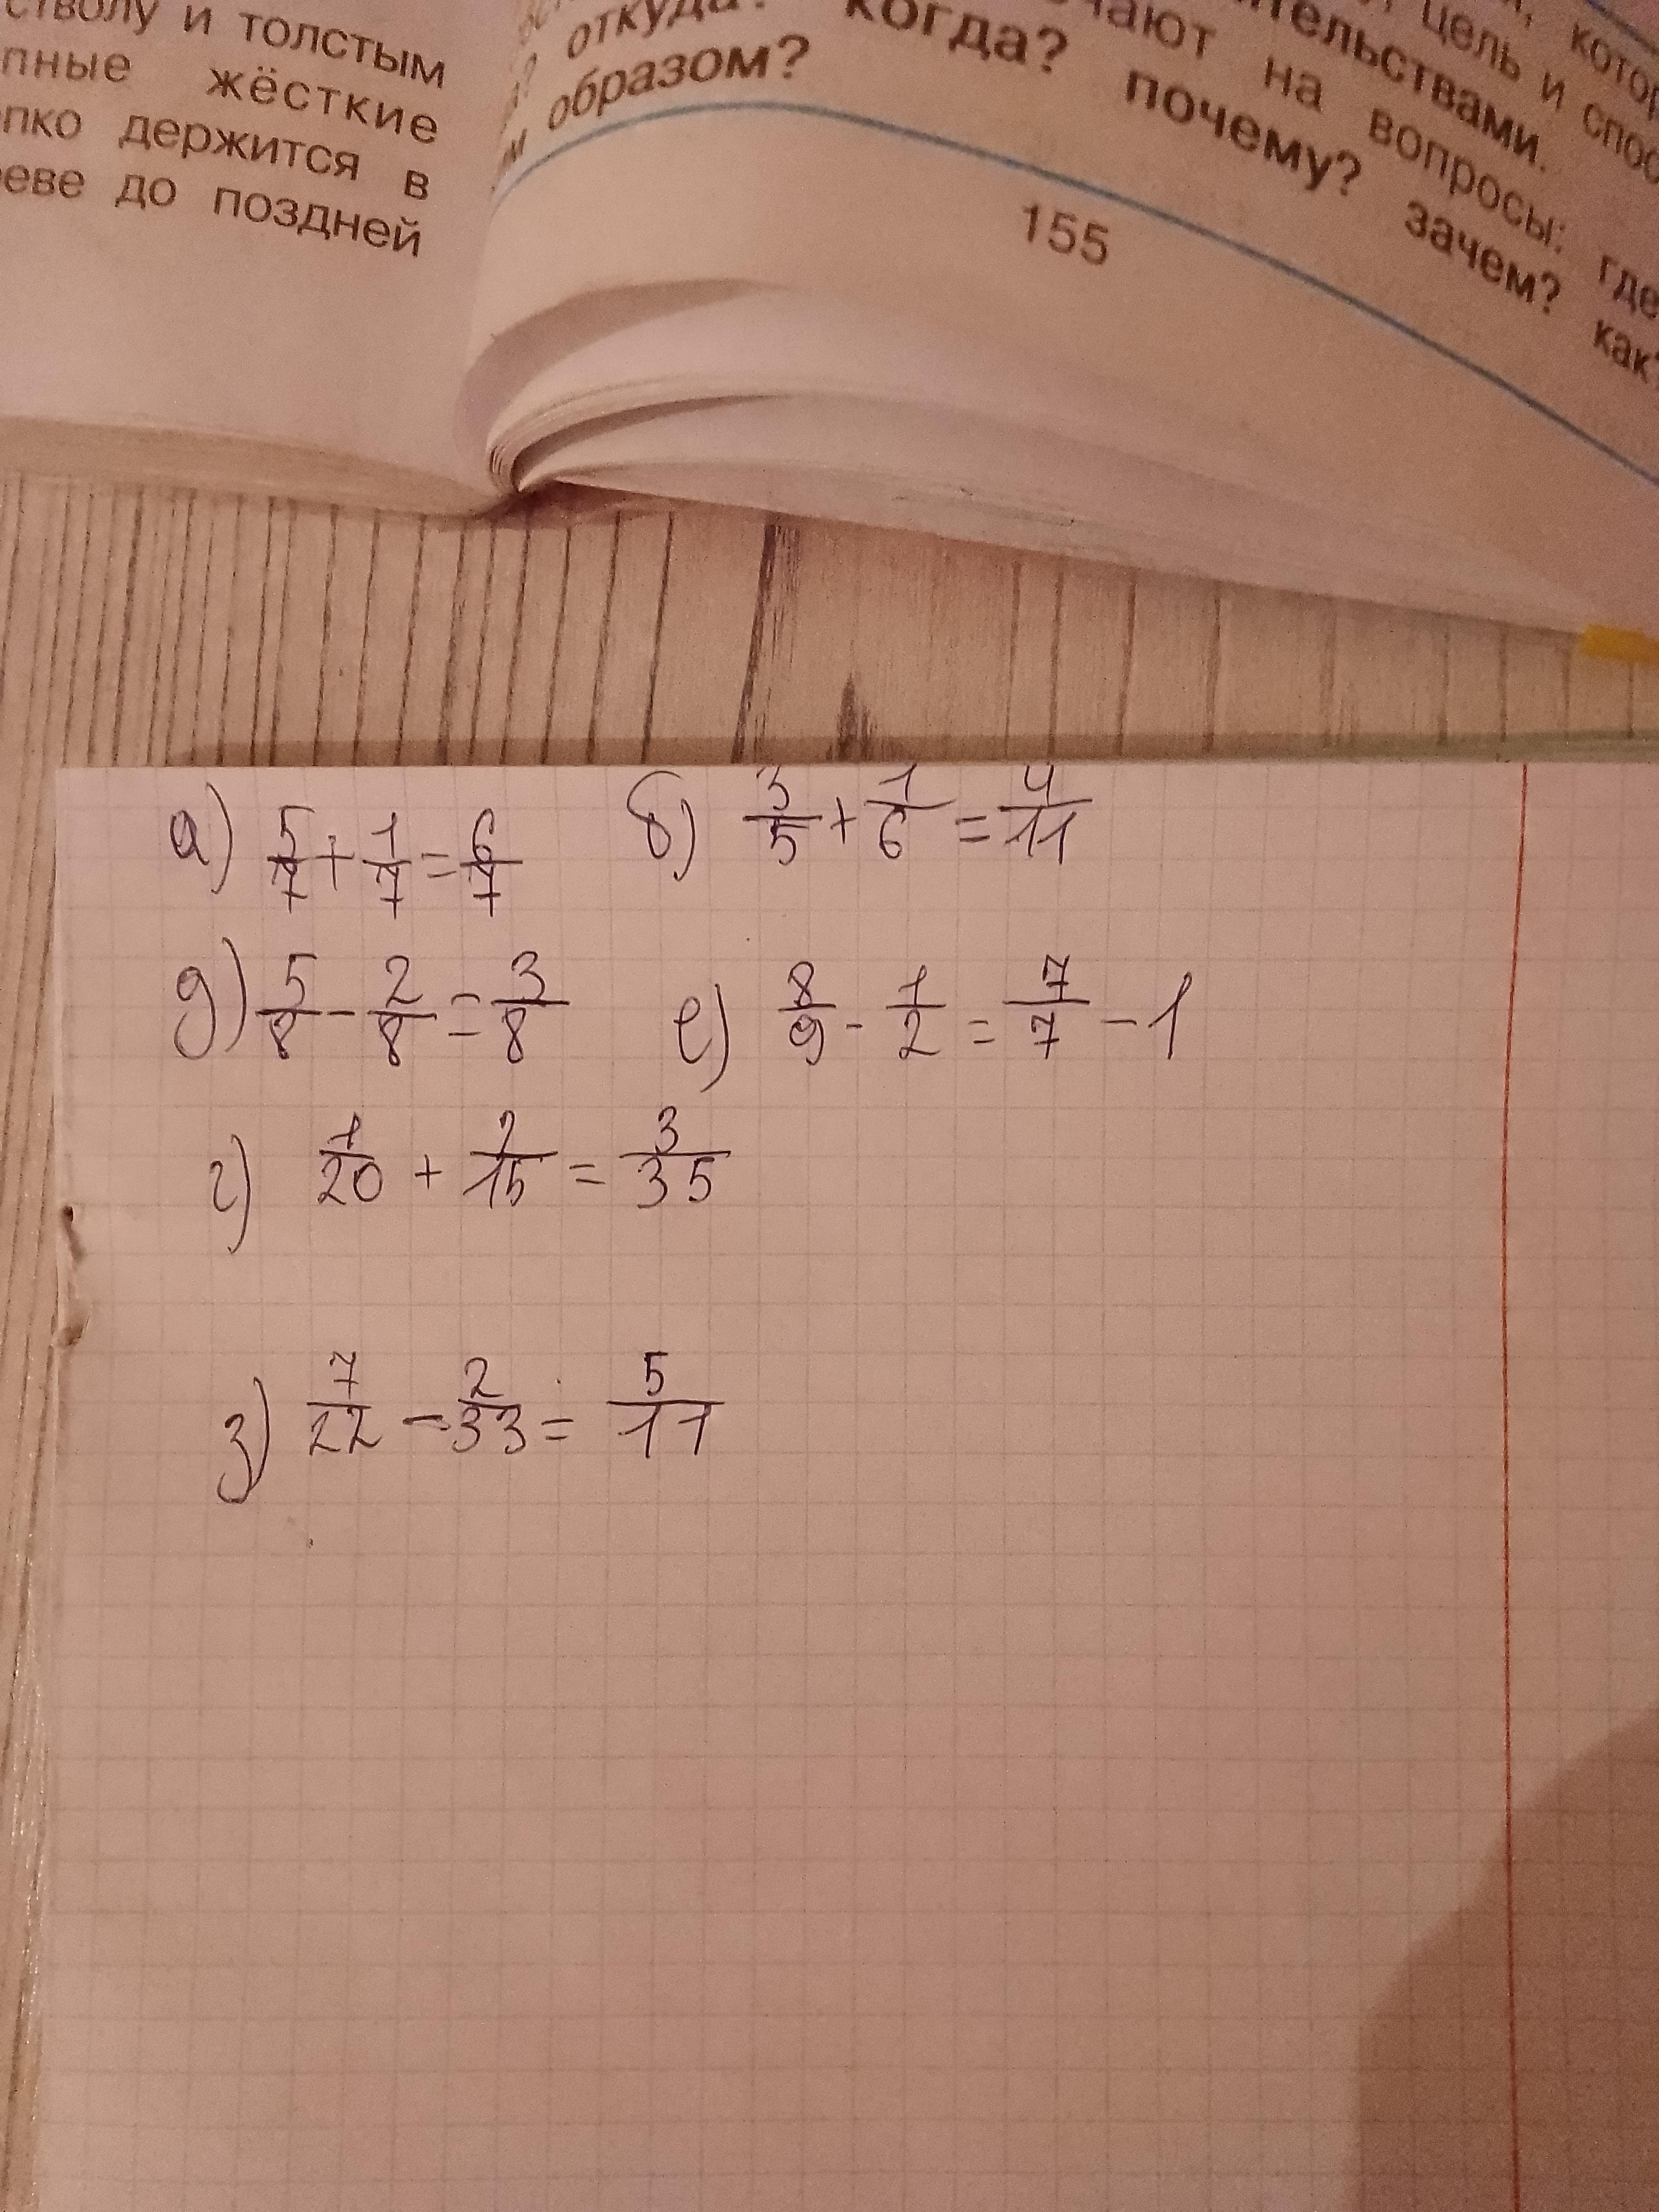 стволу и толстым
жёсткие
держится в
до поздней
откуда? когда?
образом?
на вопросы: где
почему? зачем? как?
цель и
155
а) 5/7 + 1/7 = 6/7 б) 3/5 + 1/6 = 4/11
д) 5/8 - 2/8 = 3/8 е) 8/9 - 1/2 = 7/7 - 1
г) 1/20 + 2/15 = 3/35
з) 7/22 - 2/33 = 5/11